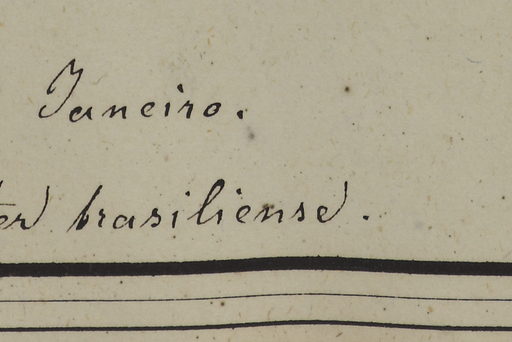 Janeiro.
brasiliense.